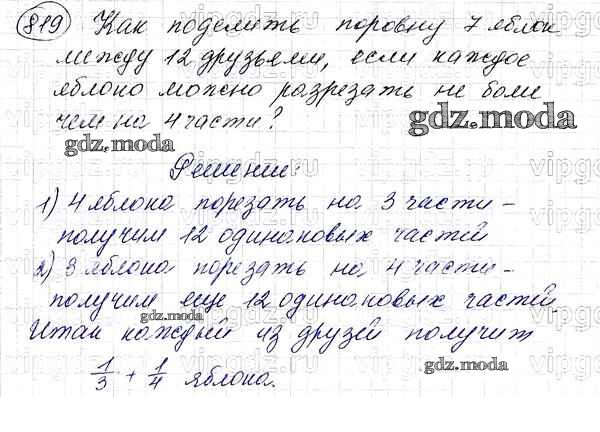 819 Как поделить поровну 7 яблок
между 12 друзьями, если каждое
яблоко можно разрезать не более
чем на 4 части?
gdz.moda
gdz.moda
Решение:
1) 4 яблока порезать на 3 части -
получим 12 одинаковых частей
2) 3 яблока порезать на 4 части -
получим еще 12 одинаковых частей.
gdz.moda
Итак каждый из друзей получит
1/3 + 1/4 яблока.
gdz.moda